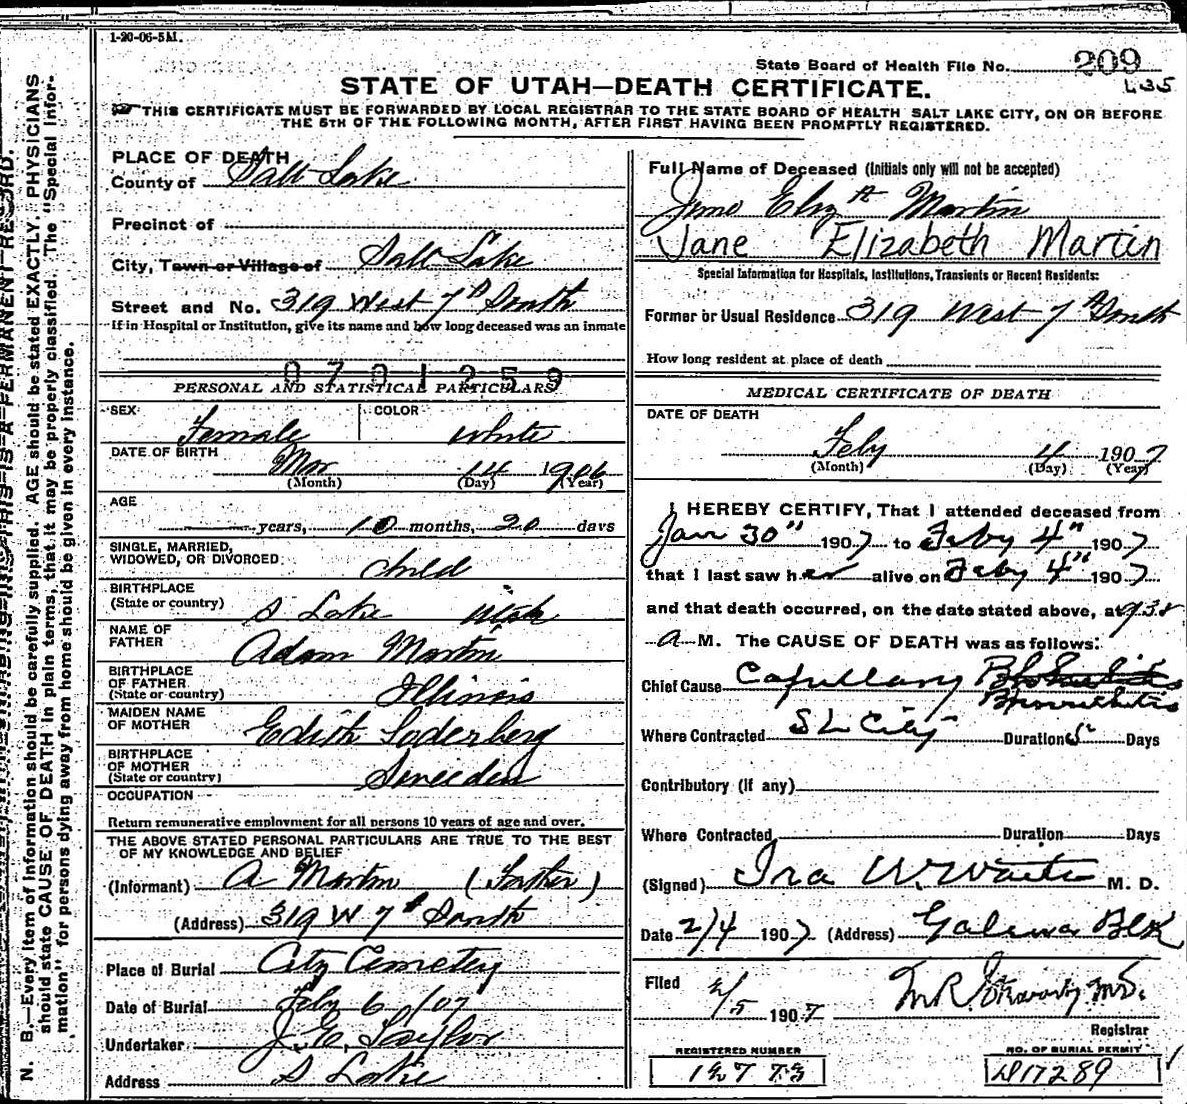 1-20-06-5M.
State Board of Health File No. 209
STATE OF UTAH—DEATH CERTIFICATE.
THIS CERTIFICATE MUST BE FORWARDED BY LOCAL REGISTRAR TO THE STATE BOARD OF HEALTH SALT LAKE CITY, ON OR BEFORE
THE 5TH OF THE FOLLOWING MONTH, AFTER FIRST HAVING BEEN PROMPTLY REGISTERED.
N. B.—Every item of information should be carefully supplied. AGE should be stated EXACTLY. PHYSICIANS
should state CAUSE OF DEATH in plain terms, that it may be properly classified. The "Special Infor-
mation" for persons dying away from home should be given in every instance.
PLACE OF DEATH
County of Salt Lake
Precinct of
City, Town or Village of Salt Lake
Street and No. 319 West 7th South
If in Hospital or Institution, give its name and how long deceased was an inmate
0701259
PERSONAL AND STATISTICAL PARTICULARS
SEX Female COLOR White
DATE OF BIRTH Mar 14 1906
(Month) (Day) (Year)
AGE
years, 10 months, 20 days
SINGLE, MARRIED,
WIDOWED, OR DIVORCED child
BIRTHPLACE
(State or country) S Lake Utah
NAME OF
FATHER Adam Martin
BIRTHPLACE
OF FATHER
(State or country) Illinois
MAIDEN NAME
OF MOTHER Edith Soderberg
BIRTHPLACE
OF MOTHER
(State or country) Sweeden
OCCUPATION
Return remunerative employment for all persons 10 years of age and over.
THE ABOVE STATED PERSONAL PARTICULARS ARE TRUE TO THE BEST
OF MY KNOWLEDGE AND BELIEF
(Informant) A Martin (Father)
(Address) 319 W 7th South
Place of Burial City Cemetery
Date of Burial Feby 6 /07
Undertaker J. E. Taylor
Address S Lake
Full Name of Deceased (Initials only will not be accepted)
Jane Elizth Martin
Jane Elizabeth Martin
Special Information for Hospitals, Institutions, Transients or Recent Residents:
Former or Usual Residence 319 West 7th South
How long resident at place of death
MEDICAL CERTIFICATE OF DEATH
DATE OF DEATH
Feby 4 1907
(Month) (Day) (Year)
I HEREBY CERTIFY, That I attended deceased from
Jan 30" 1907 to Feby 4" 1907
that I last saw her alive on Feby 4" 1907
and that death occurred, on the date stated above, at 9 38
A M. The CAUSE OF DEATH was as follows:
Chief Cause Capillary
Bronchitis
Where Contracted S L City Duration 5 Days
Contributory (if any)
Where Contracted Duration Days
(Signed) Ira W. Waite M. D.
Date 2/4 1907 (Address) Galena Blk
Filed 2/5 1907 M R
Registrar
REGISTERED NUMBER NO. OF BURIAL PERMIT
12773 D17289